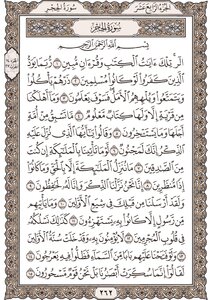 الجزء الرابع عشر
سورة الحجر
سُورَةُ الحِجْرِ
بِسْمِ ٱللَّهِ ٱلرَّحْمَٰنِ ٱلرَّحِيمِ
الٓرۚ تِلْكَ ءَايَٰتُ ٱلْكِتَٰبِ وَقُرْءَانٍ مُّبِينٍ ١ رُّبَمَا يَوَدُّ
ٱلَّذِينَ كَفَرُوا۟ لَوْ كَانُوا۟ مُسْلِمِينَ ٢ ذَرْهُمْ يَأْكُلُوا۟
وَيَتَمَتَّعُوا۟ وَيُلْهِهِمُ ٱلْأَمَلُۖ فَسَوْفَ يَعْلَمُونَ ٣ وَمَآ أَهْلَكْنَا
مِن قَرْيَةٍ إِلَّا وَلَهَا كِتَابٌ مَّعْلُومٌ ٤ مَّا تَسْبِقُ مِنْ أُمَّةٍ
أَجَلَهَا وَمَا يَسْتَـْٔخِرُونَ ٥ وَقَالُوا۟ يَٰٓأَيُّهَا ٱلَّذِى نُزِّلَ عَلَيْهِ
ٱلذِّكْرُ إِنَّكَ لَمَجْنُونٌ ٦ لَّوْمَا تَأْتِينَا بِٱلْمَلَٰٓئِكَةِ إِن كُنتَ
مِنَ ٱلصَّٰدِقِينَ ٧ مَا نُنَزِّلُ ٱلْمَلَٰٓئِكَةَ إِلَّا بِٱلْحَقِّ وَمَا كَانُوٓا۟
إِذًا مُّنظَرِينَ ٨ إِنَّا نَحْنُ نَزَّلْنَا ٱلذِّكْرَ وَإِنَّا لَهُۥ لَحَٰفِظُونَ ٩
وَلَقَدْ أَرْسَلْنَا مِن قَبْلِكَ فِى شِيَعِ ٱلْأَوَّلِينَ ١٠ وَمَا يَأْتِيهِم
مِّن رَّسُولٍ إِلَّا كَانُوا۟ بِهِۦ يَسْتَهْزِءُونَ ١١ كَذَٰلِكَ نَسْلُكُهُۥ
فِى قُلُوبِ ٱلْمُجْرِمِينَ ١٢ لَا يُؤْمِنُونَ بِهِۦ وَقَدْ خَلَتْ سُنَّةُ ٱلْأَوَّلِينَ
١٣ وَلَوْ فَتَحْنَا عَلَيْهِم بَابًا مِّنَ ٱلسَّمَآءِ فَظَلُّوا۟ فِيهِ يَعْرُجُونَ ١٤
لَقَالُوٓا۟ إِنَّمَا سُكِّرَتْ أَبْصَٰرُنَا بَلْ نَحْنُ قَوْمٌ مَّسْحُورُونَ ١٥
٢٦٢